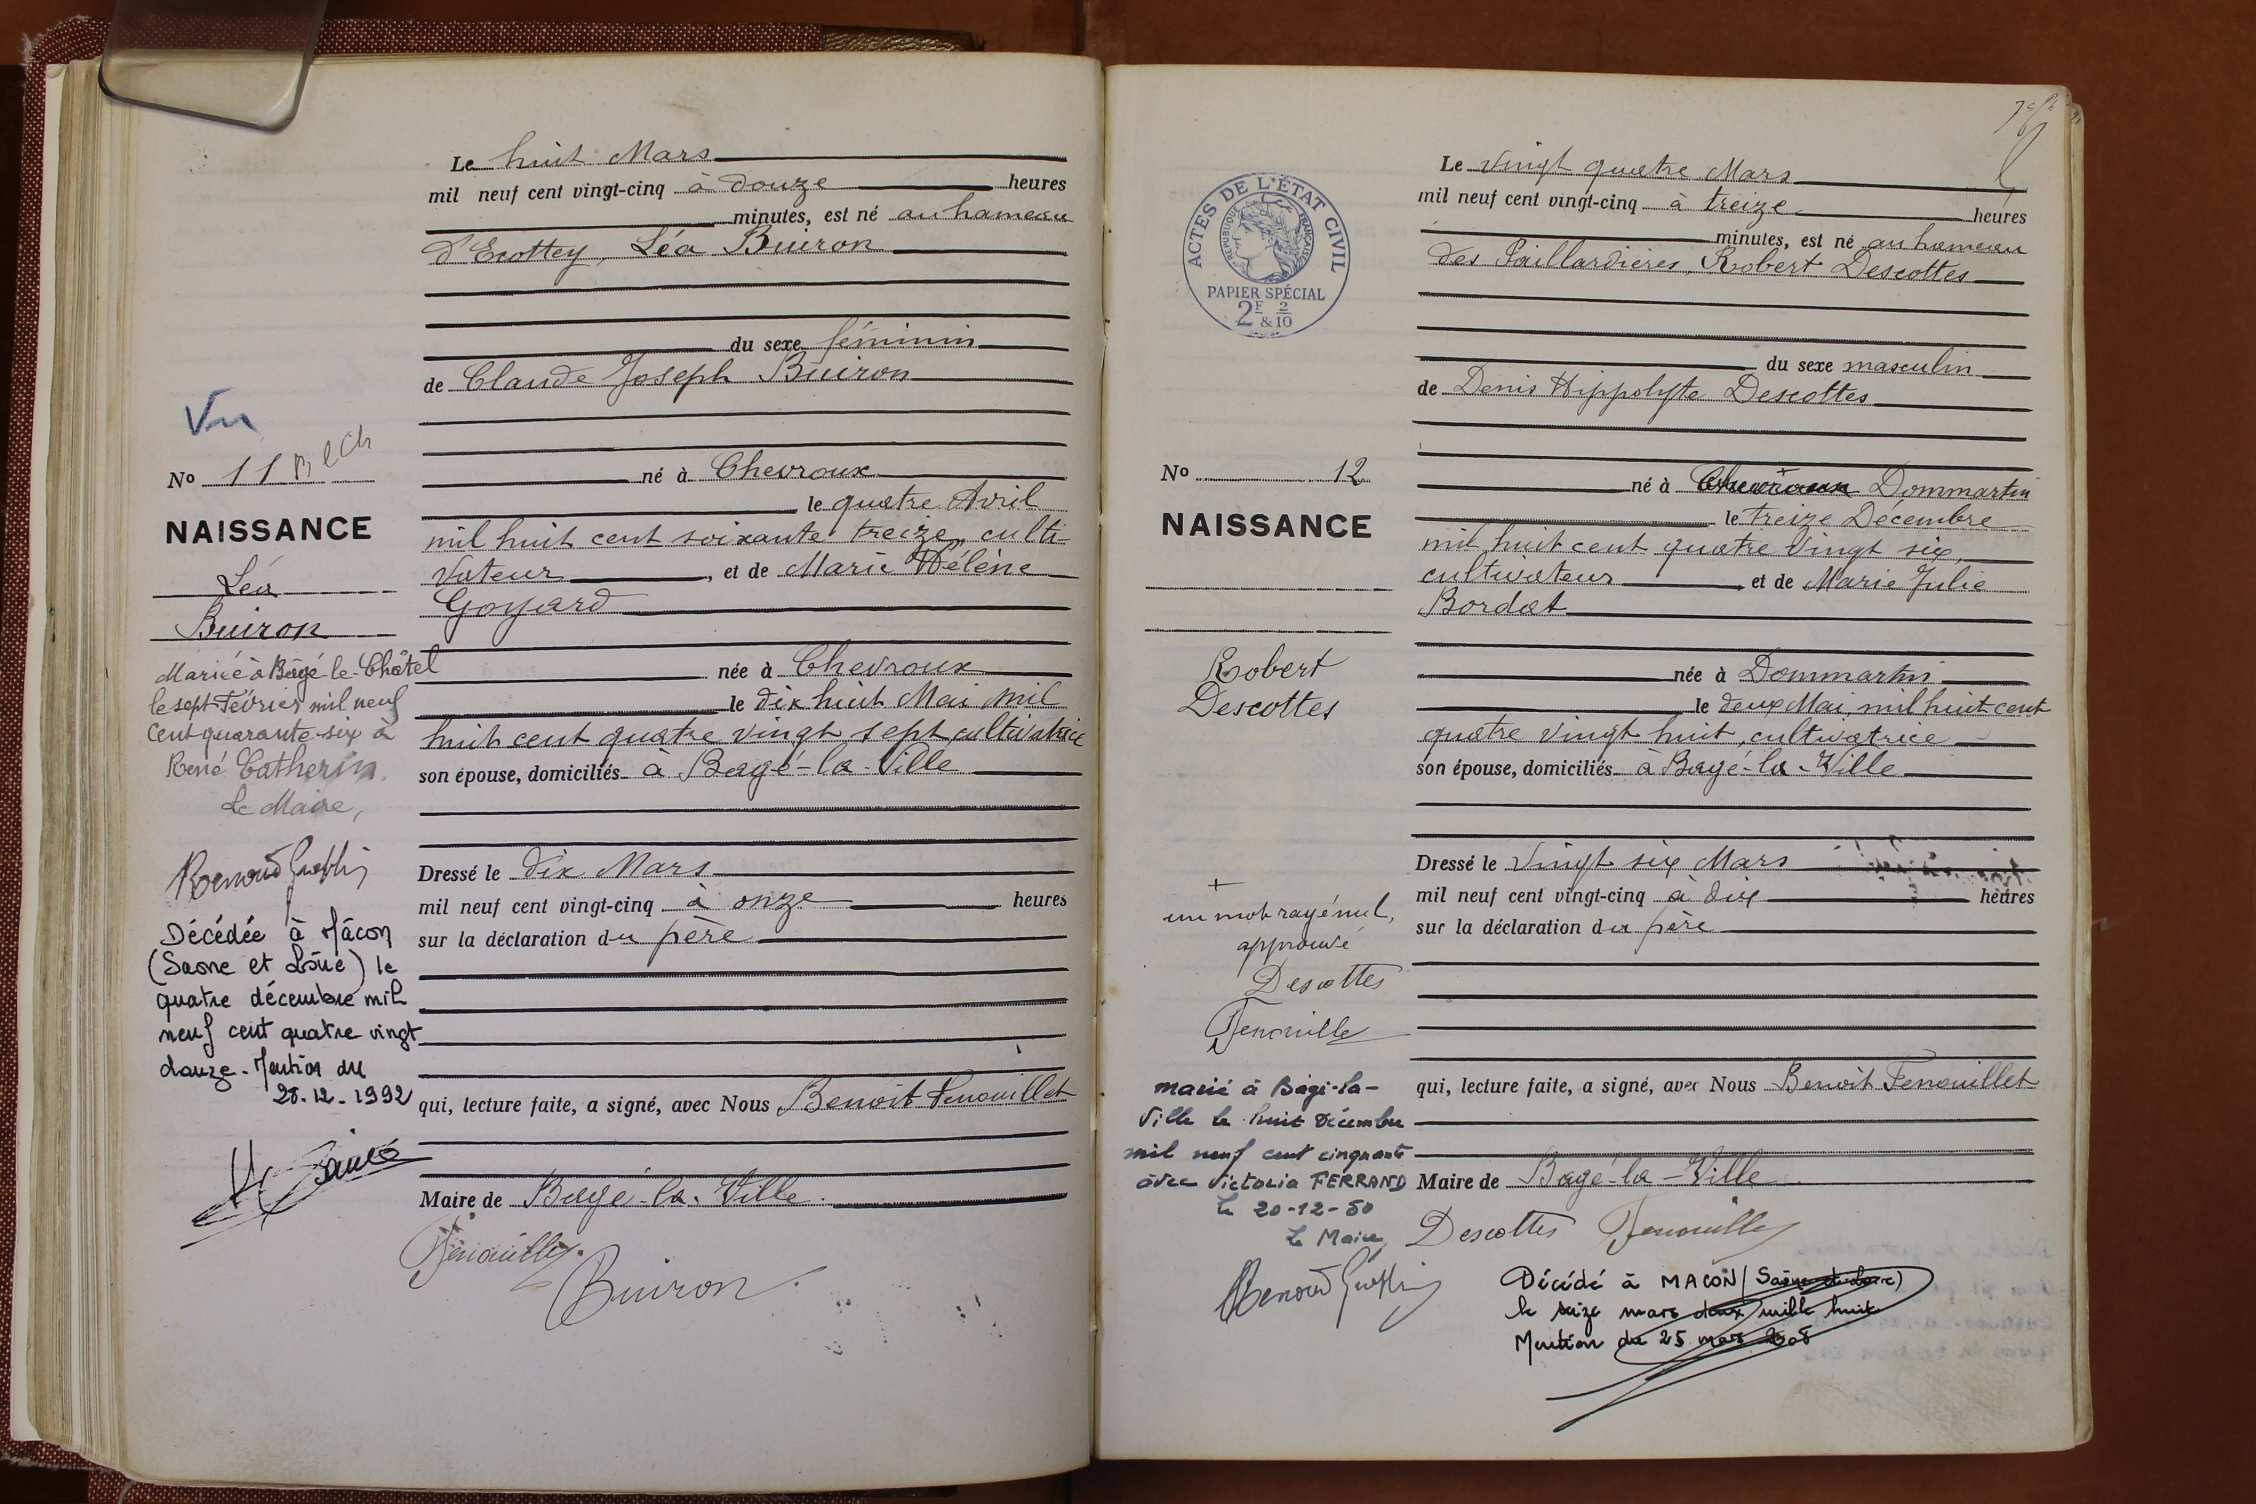 Le huit Mars
mil neuf cent vingt-cinq à douze heures
minutes, est né au hameau
d'Ecottey, Léa Buiron
du sexe féminin
de Claude Joseph Buiron
Vu
No 11
né à Chevroux
le quatre Avril
NAISSANCE
mil huit cent soixante treize, culti-
vateur, et de Marie Hélène
Léa
Goyard
Buiron
Mariée à Bâgé-le-Châtel
née à Chevroux
le sept Février mil neuf
le dix huit Mai mil
cent quarante-six à
huit cent quatre vingt sept cultivatrice
René Catherin.
son épouse, domiciliés à Bagé-la-Ville
Le Maire,
Dressé le dix Mars
mil neuf cent vingt-cinq à onze heures
sur la déclaration du père
Décédée à Mâcon
(Saone et Loire) le
quatre décembre mil
neuf cent quatre vingt
douze. Mention du
28.12.1992
qui, lecture faite, a signé, avec Nous Benoit Fenouillet
Maire de Bagé-la-Ville
Buiron
Le vingt quatre Mars
mil neuf cent vingt-cinq à treize heures
minutes, est né au hameau
des Paillardières, Robert Descottes
ACTES DE L'ÉTAT CIVIL
RÉPUBLIQUE FRANÇAISE
PAPIER SPÉCIAL
2F & 2/10
du sexe masculin
de Denis Hippolyte Descottes
No 12
né à Chevroux Dommartin
NAISSANCE
le treize Décembre
mil huit cent quatre vingt six,
cultivateur et de Marie Julie
Bordat
Robert
Descottes
née à Dommartin
le deux Mai, mil huit cent
quatre vingt huit, cultivatrice
son épouse, domiciliés à Bagé-la-Ville
Dressé le vingt six Mars
mil neuf cent vingt-cinq à dix heures
sur la déclaration du père
+
un mot rayé nul,
approuvé
Descottes
marié à Bâgé-la-
Ville le huit Décembre
mil neuf cent cinquante
avec Victoria FERRAND
le 20-12-50
Le Maire
qui, lecture faite, a signé, avec Nous Benoit Fenouillet
Maire de Bagé-la-Ville
Descottes
Décédé à MACON (Saône et Loire)
le seize mars deux mille huit
Mention du 25 mars 2008